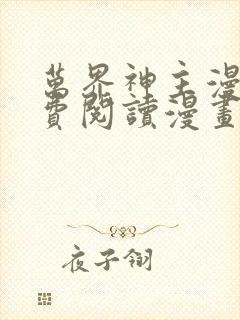 萬界神主漫
費閱讀漫畫
夜子翎